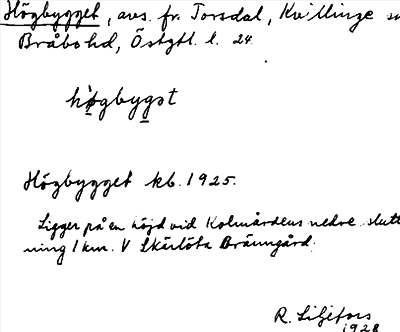 Högbygget, avs. fr. Torsdal, Kvillinge s
Bråbo hd, Östgtl. l. 24.
högbygət
Högbygget kb. 1925.
Ligger på en höjd vid Kolmårdens nedre slutt
ning 1 km. V Skärlöta Bränngård.
R. Liljefors
1928